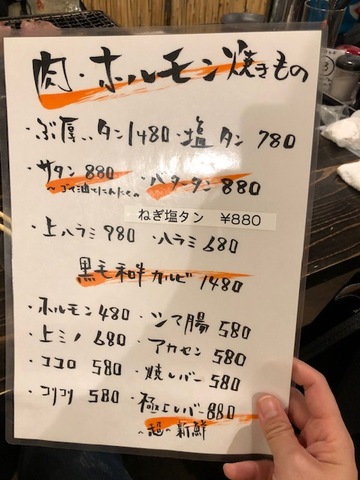 肉・ホルモン焼きもの
・ぶ厚いタン1480 ・塩タン 780
・サタン 880 ・バタータン 880
ねぎ塩タン ¥880
・上ハラミ 980 ・ハラミ 680
黒毛和牛カルビ 1480
・ホルモン 480 ・シマ腸 580
・上ミノ 680 ・アカセン 580
・ココロ 580 ・焼レバー 580
・コリコリ 580 ・極上レバー 880
～超～新鮮